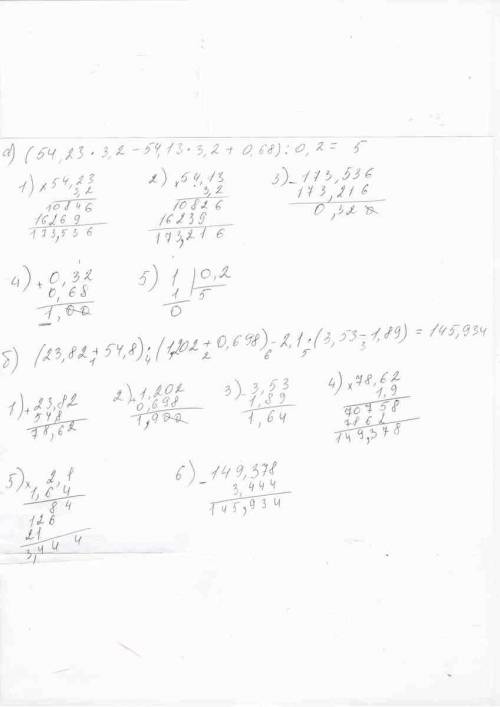 а) (54,23 · 3,2 - 54,13 · 3,2 + 0,68) : 0,2 = 5
1) × 54,23
3,2
10846
16269
173,536
2) × 54,13
3,2
10826
16239
173,216
3) - 173,536
173,216
0,320
4) + 0,32
0,68
1,00
5) 1 | 0,2
1 5
0
б) (23,82 + 54,8) · (1,202 + 0,698) - 2,1 · (3,53 - 1,89) = 145,934
1 4 2 6 5 3
1) + 23,82
54,8
78,62
2) + 1,202
0,698
1,900
3) - 3,53
1,89
1,64
4) × 78,62
1,9
70758
7862
149,378
5) × 2,1
1,64
84
126
21
3,444
6) - 149,378
3,444
145,934